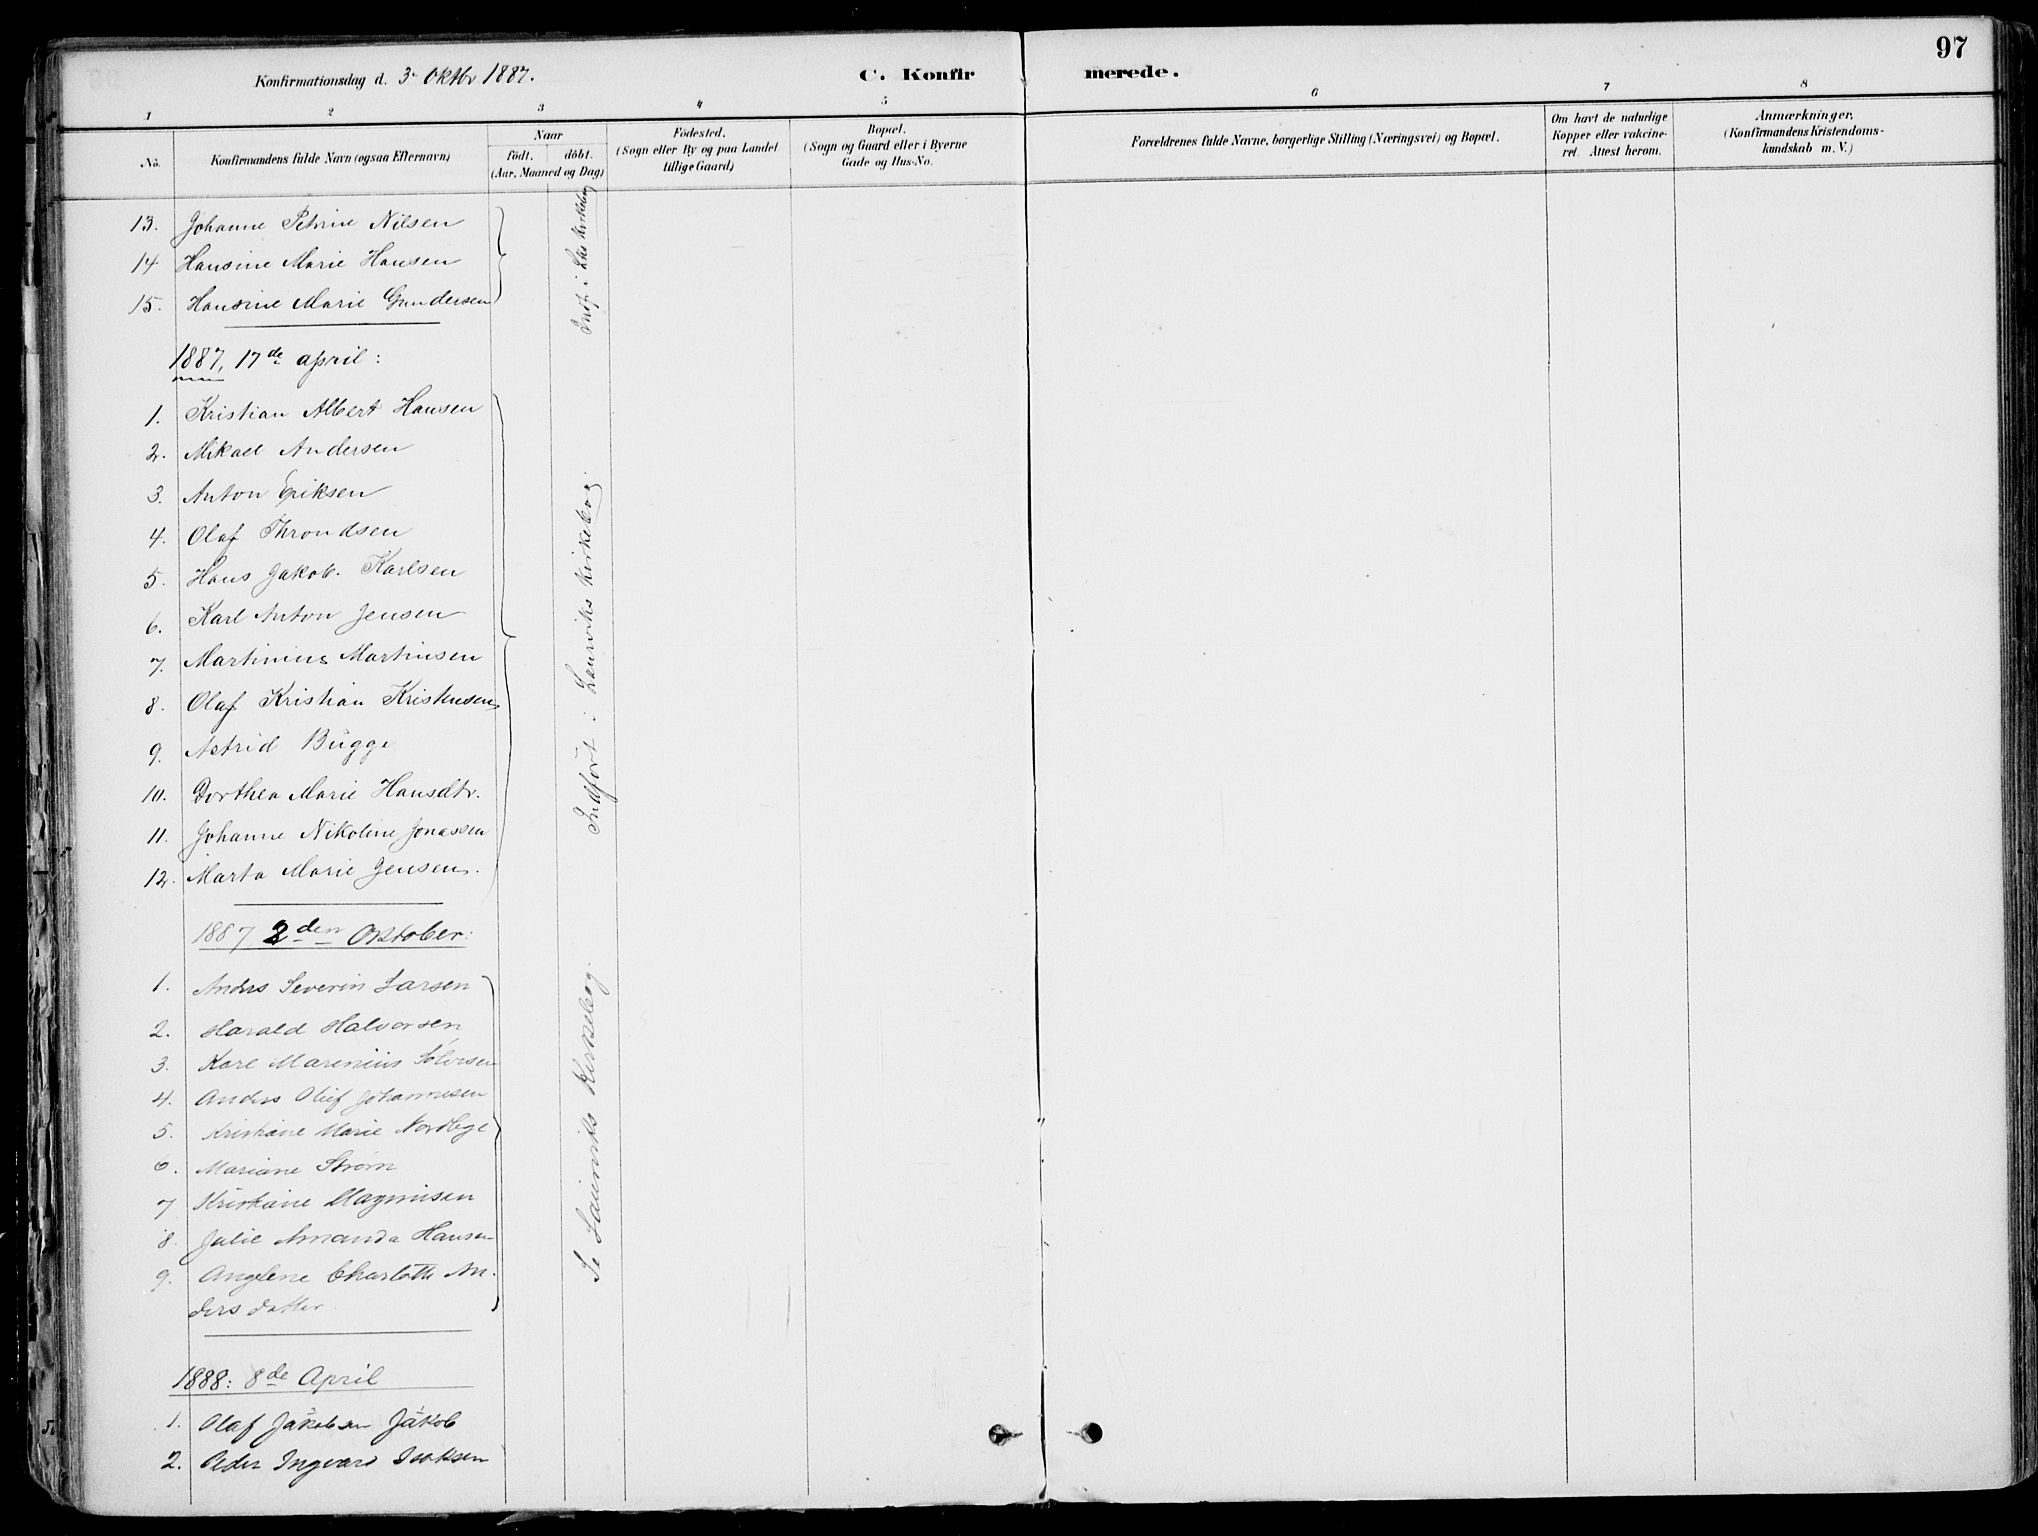 97
Konfirmationsdag d. 3 Oktbr 1887.
C. Konfirmerede.
1 2 3 4 5 6 7 8
No.
Konfirmandens fulde Navn (ogsaa Efternavn)
Naar
födt. döbt.
(Aar, Maaned og Dag)
Födested.
(Sogn eller By og paa Landet
tillige Gaard)
Bopæl.
(Sogn og Gaard eller i Byerne
Gade og Hus-No.
Forældrenes fulde Navne, borgerlige Stilling (Næringsvei) og Bopæl.
Om havt de naturlige
Kopper eller vakcine-
ret. Attest herom.
Anmærkninger.
(Konfirmandens Kristendoms-
kundskab m. V.)
13. Johanne Petrine Nilsen
14 Hansine Marie Hansen
15. Hansine Marie Gundersen
Indf. i Lks Kirkebog
1887, 17de april:
1. Kristian Albert Hansen
2. Mikael Andersen
3. Anton Eriksen
4. Olaf Throndsen
5. Hans Jakob. Karlsen
6. Karl Anton Jensen
7. Martinius Martinsen
8. Olaf Kristian Kristensen
9. Astrid Bugge
10. Dorthea Marie Hansdtr.
11. Johanne Nikoline Jonassen
12. Marta Marie Jensen.
Indført i Laurviks Kirkebog.
1887 2den Oktober:
1. Anders Severin Larsen
2. Harald Halvorsen
3. Karl Marenius Sölvesen
4. Anders Oluf Johannesen
5. Kristiane Marie Nordbye
6. Mariane Strøm
7 Kristiane Magnusen
8. Julie Amanda Hansen
9. Angelene Charlotte An-
dersdatter
Se Laurviks Kirkebog.
1888: 8de April
1. Olaf Jakobsen Jakob
2. Peder Ingvard Isaksen